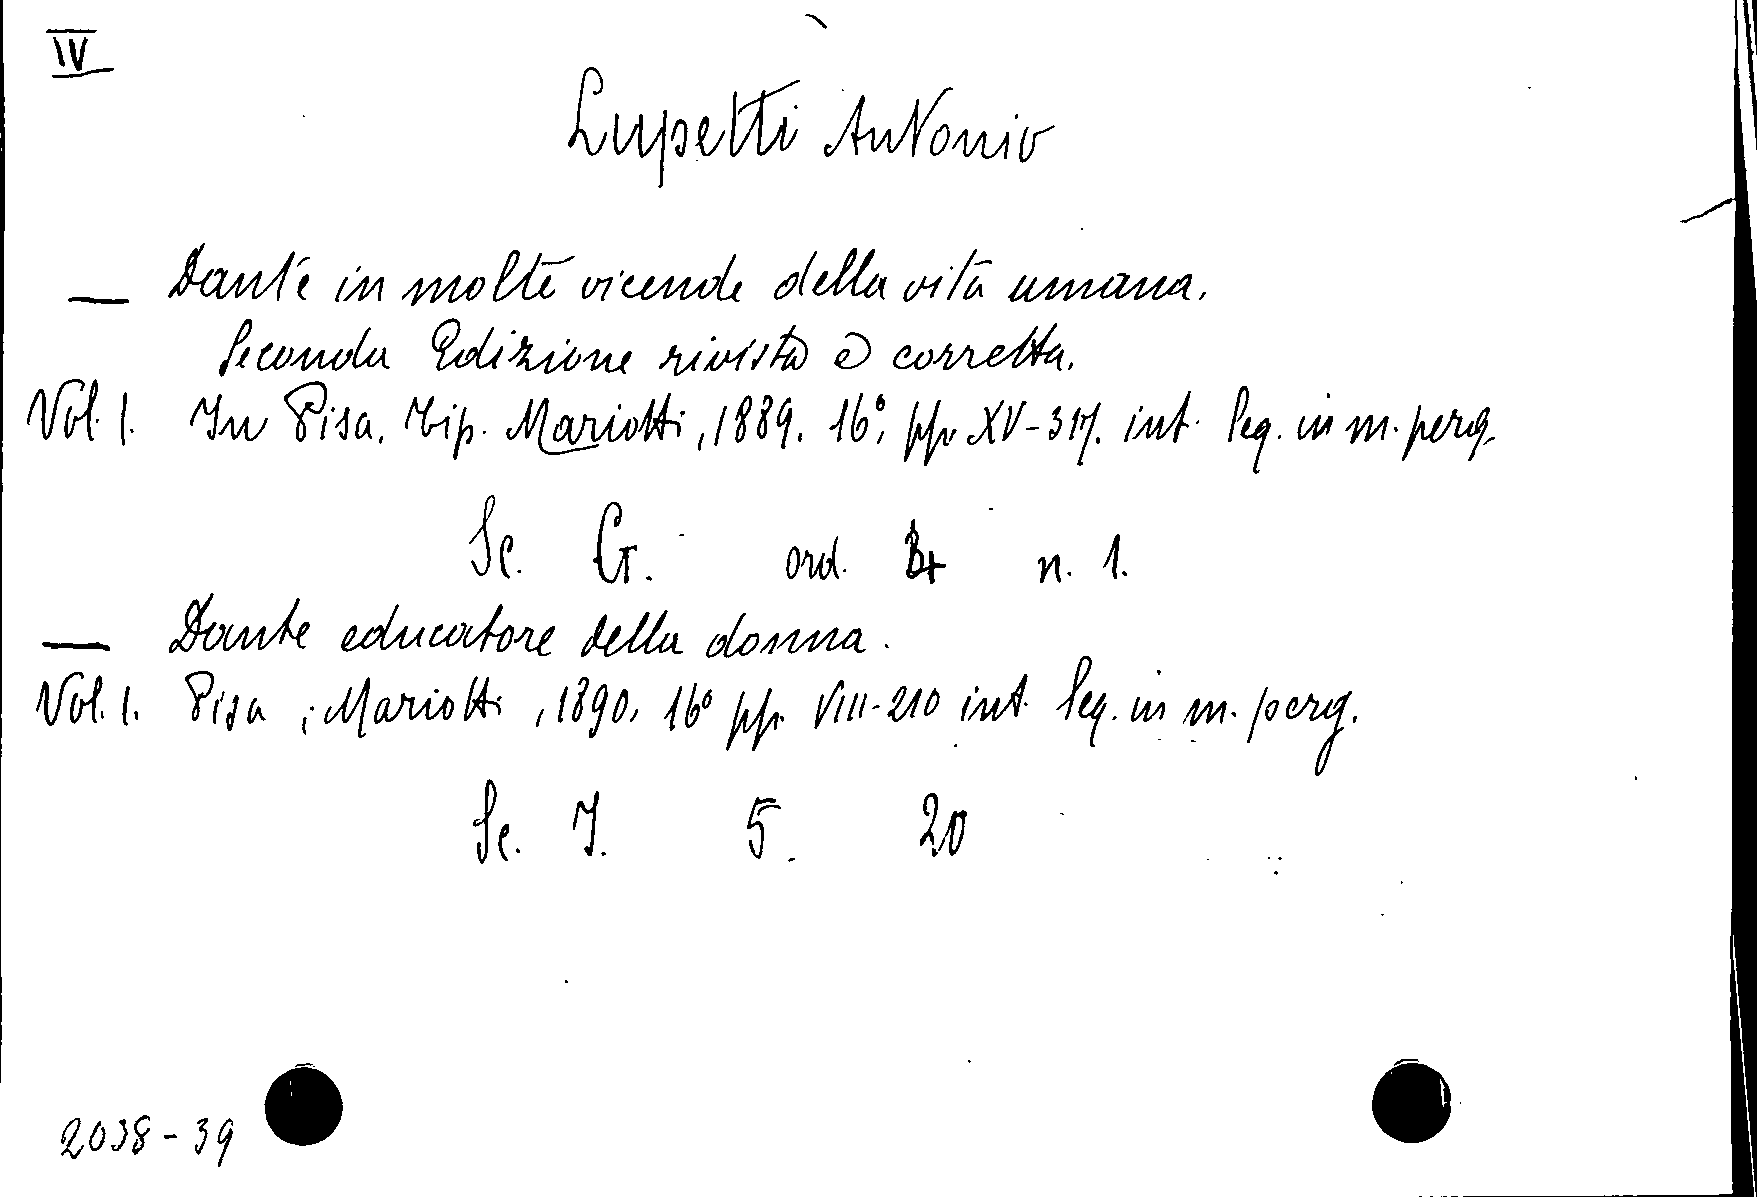 IV
Lupetti Antonio
— Dante in molte vicende della vita umana.
Seconda Edizione rivista e corretta.
Vol. 1. In Pisa. Tip. Mariotti, 1889. 16°, pp. XV-317. int. leg. in m. perg.
Sc. G. ord. 4 n. 1.
— Dante educatore della donna.
Vol. 1. Pisa, Mariotti, 1890, 16° pp. VIII-210 int. leg. in m. perg.
Sc. I. 5. 20
2038-39